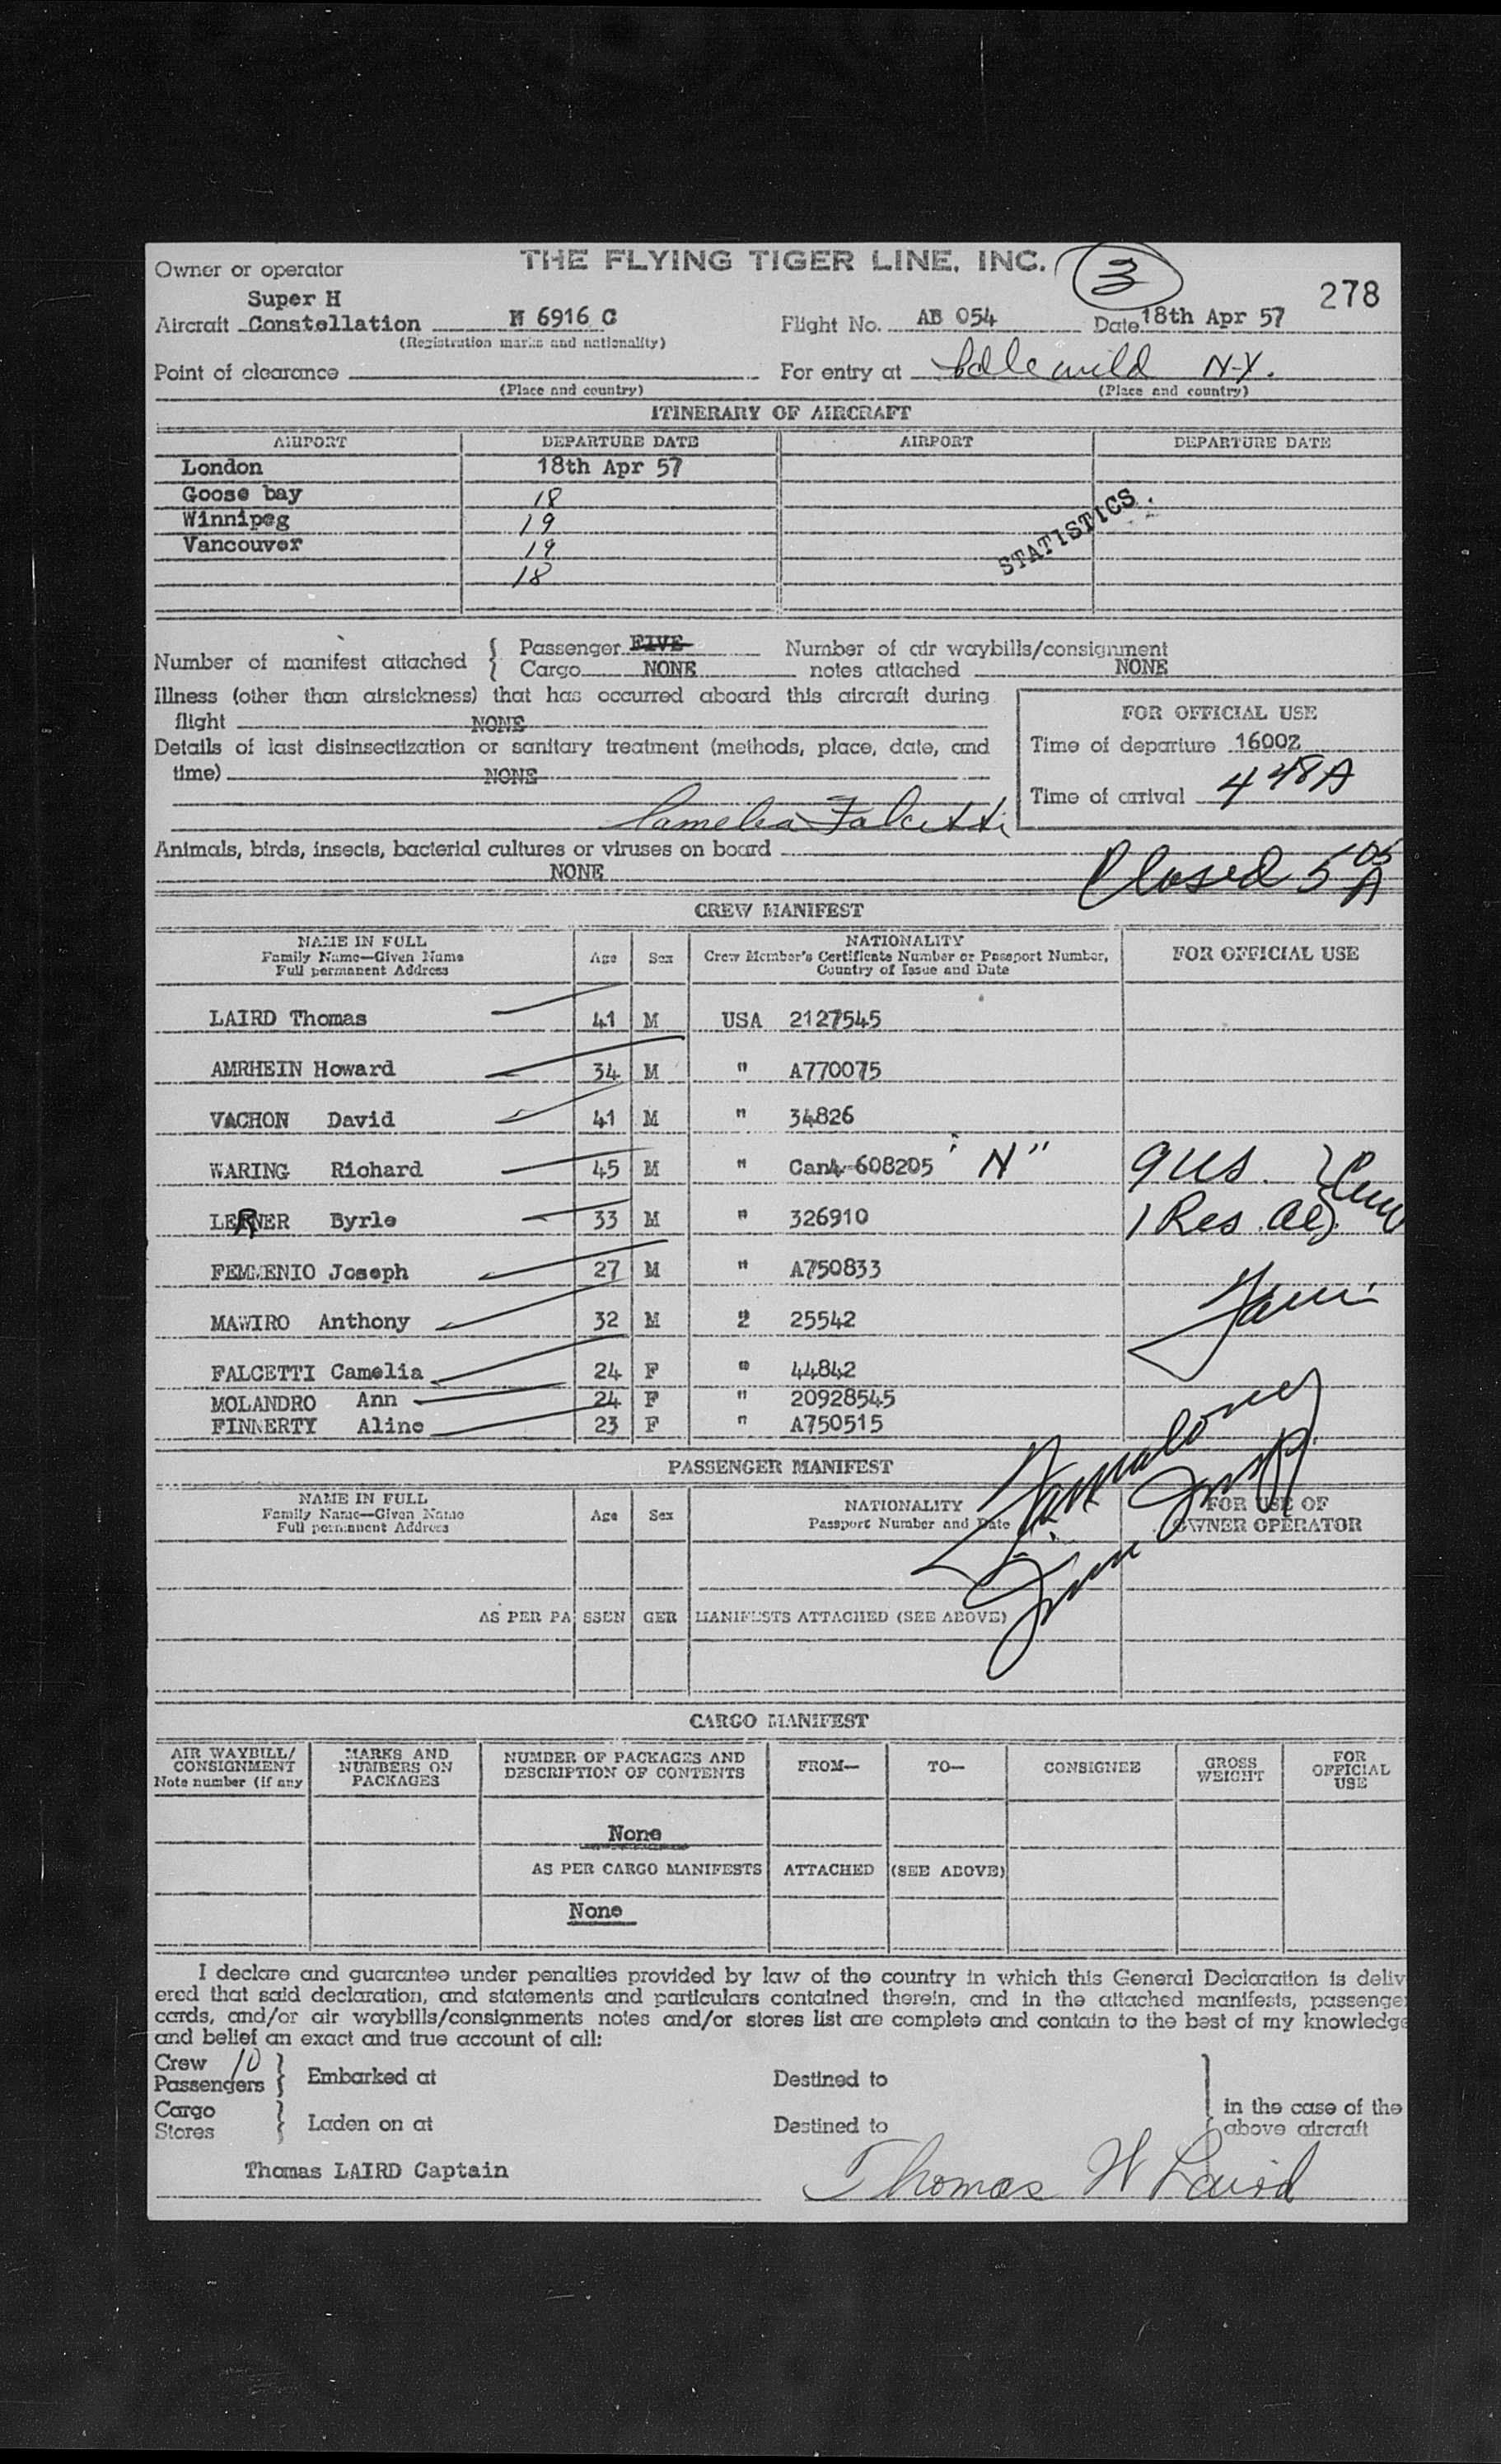 THE FLYING TIGER LINE, INC.
3
278
Owner or operator
Super H
Aircraft Constellation N 6916 C Flight No. AB 054 Date 18th Apr 57
(Registration marks and nationality)
Point of clearance For entry at Idlewild N-Y.
(Place and country) (Place and country)
ITINERARY OF AIRCRAFT
AIRPORT DEPARTURE DATE AIRPORT DEPARTURE DATE
London 18th Apr 57
Goose bay 18
Winnipeg 19
Vancouver 19
18
STATISTICS
Number of manifest attached { Passenger FIVE Number of air waybills/consignment
Cargo NONE notes attached NONE
Illness (other than airsickness) that has occurred aboard this aircraft during
flight NONE
Details of last disinsectization or sanitary treatment (methods, place, date, and
time) NONE
Camelia Falcetti
FOR OFFICIAL USE
Time of departure 1600Z
Time of arrival 4 48 A
Animals, birds, insects, bacterial cultures or viruses on board
NONE
Closed 5 05 A
CREW MANIFEST
NAME IN FULL
Family Name—Given Name
Full permanent Address
Age Sex
NATIONALITY
Crew Member's Certificate Number or Passport Number,
Country of Issue and Date
FOR OFFICIAL USE
LAIRD Thomas 41 M USA 2127545
AMRHEIN Howard 34 M " A770075
VACHON David 41 M " 34826
WARING Richard 45 M " Can 4-608205 "N" 9 US.
LERNER Byrle 33 M " 326910 1 Res. Al
FEMMENIO Joseph 27 M " A750833
MAWIRO Anthony 32 M 2 25542
FALCETTI Camelia 24 F " 44842
MOLANDRO Ann 24 F " 20928545
FINNERTY Aline 23 F " A750515
PASSENGER MANIFEST
NAME IN FULL
Family Name—Given Name
Full permanent Address
Age Sex
NATIONALITY
Passport Number and Date
FOR USE OF
OWNER OPERATOR
AS PER PASSENGER MANIFESTS ATTACHED (SEE ABOVE)
CARGO MANIFEST
AIR WAYBILL/
CONSIGNMENT
Note number (if any
MARKS AND
NUMBERS ON
PACKAGES
NUMBER OF PACKAGES AND
DESCRIPTION OF CONTENTS
FROM— TO— CONSIGNEE
GROSS
WEIGHT
FOR
OFFICIAL
USE
None
AS PER CARGO MANIFESTS ATTACHED (SEE ABOVE)
None
I declare and guarantee under penalties provided by law of the country in which this General Declaration is deliv
ered that said declaration, and statements and particulars contained therein, and in the attached manifests, passenger
cards, and/or air waybills/consignments notes and/or stores list are complete and contain to the best of my knowledge
and belief an exact and true account of all:
Crew 10
Passengers } Embarked at Destined to
Cargo
Stores } Laden on at Destined to
in the case of the
above aircraft
Thomas LAIRD Captain
Thomas W Laird